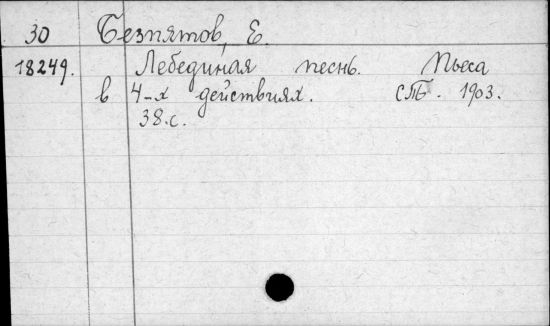 30 Безпятов, Е.
18249. Лебединая песнь. Пьеса
в 4-х действиях. СПБ. 1903.
38.с.